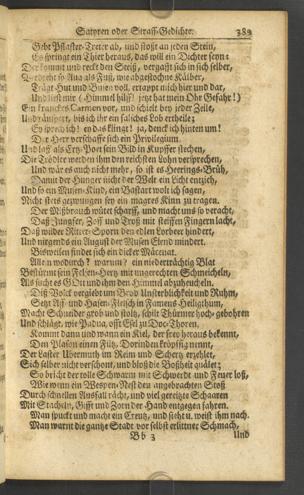 Satyren oder Straff-Gedichte. 389
Geht Pflaster-Treter ab, und stoßt an jeden Stein,
Es springt ein Thier heraus, das will ein Dichter seyn:
Der kommt und reckt den Steiß, vergafft sich in sich selber,
so Aug als Fuß, wie abgestochne Kälber,
Trägt Hut und Busen voll, ertappt mich hier und dar,
Und liest mir (Himmel hilff! jetzt hat mein Ohr Gefahr!)
Ein kranckes Carmen vor, und schielt bey jeder Zeile,
Und räuspert, bis ich ihr ein falsches Lob ertheile;
Ey sprech ich! en das klingt! ja, denck ich hinten um!
Der Herr verschaffe sich ein Privilegium
Und laß als Ertz-Poet sein Bild in Kupffer stechen,
Die Trödler werden ihm den reichsten Lohn versprechen,
Und wär es auch nicht mehr, so ist es Heerings-Brüh,
Damit der Hunger nicht der Welt ein Licht entzieh,
Und so ein Musen-Kind, ein Bastart wolt ich sagen,
Nicht stets gezwungen sey ein magres Kinn zu tragen.
Der Mißbrauch wütet scharff, und macht uns so veracht,
Daß Jungfer, Zoff und Troß mit steiffen Fingern lacht,
Daß wilde Ritter-Sporn den edlen Lorbeer hindert,
Und nirgends ein August der Musen Elend mindert.
Bisweilen findet sich ein dicker Mäcenat.
Allein wodurch? warum? ein niederträchtig Blat
Bestürmt sein Felsen-Hertz mit ungerechten Schmeicheln,
Als sucht es GOtt und ihm den Himmel abzuheucheln.
Diß Volck vergleicht um Brod Unsterblichkeit und Ruhm,
Setzt Aff- und Hasen-Fleisch in Famens Heiligthum,
Macht Schneider grob und stoltz, schilt Thürmer hoch-gebohren
Und schlägt, wie Padua, offt Esel zu Doctoren.
Kommt dann und wann ein Kiel, der frey heraus bekennt,
Den Plason einen Filtz, Dorinden kröpffig nennt,
Der Laster Ubermuth im Reim und Schertz erzehlet,
Sich selber nicht verschont, und bloß die Boßheit quälet;
So bricht der tolle Schwarm mit Schwerdt und Feuer loß,
Wie wenn ein Wespen-Nest den angebrachten Stoß
Durch schnellen Ausfall rächt, und viel gereitzte Schaaren
Mit Stacheln, Gifft und Zorn der Hand entgegen fahren.
Man spuckt und macht ein Creutz, und sieht u. weist ihm nach.
Man warnt die gantze Stadt vor selbst erlittner Schmach,
Bb 3 Und